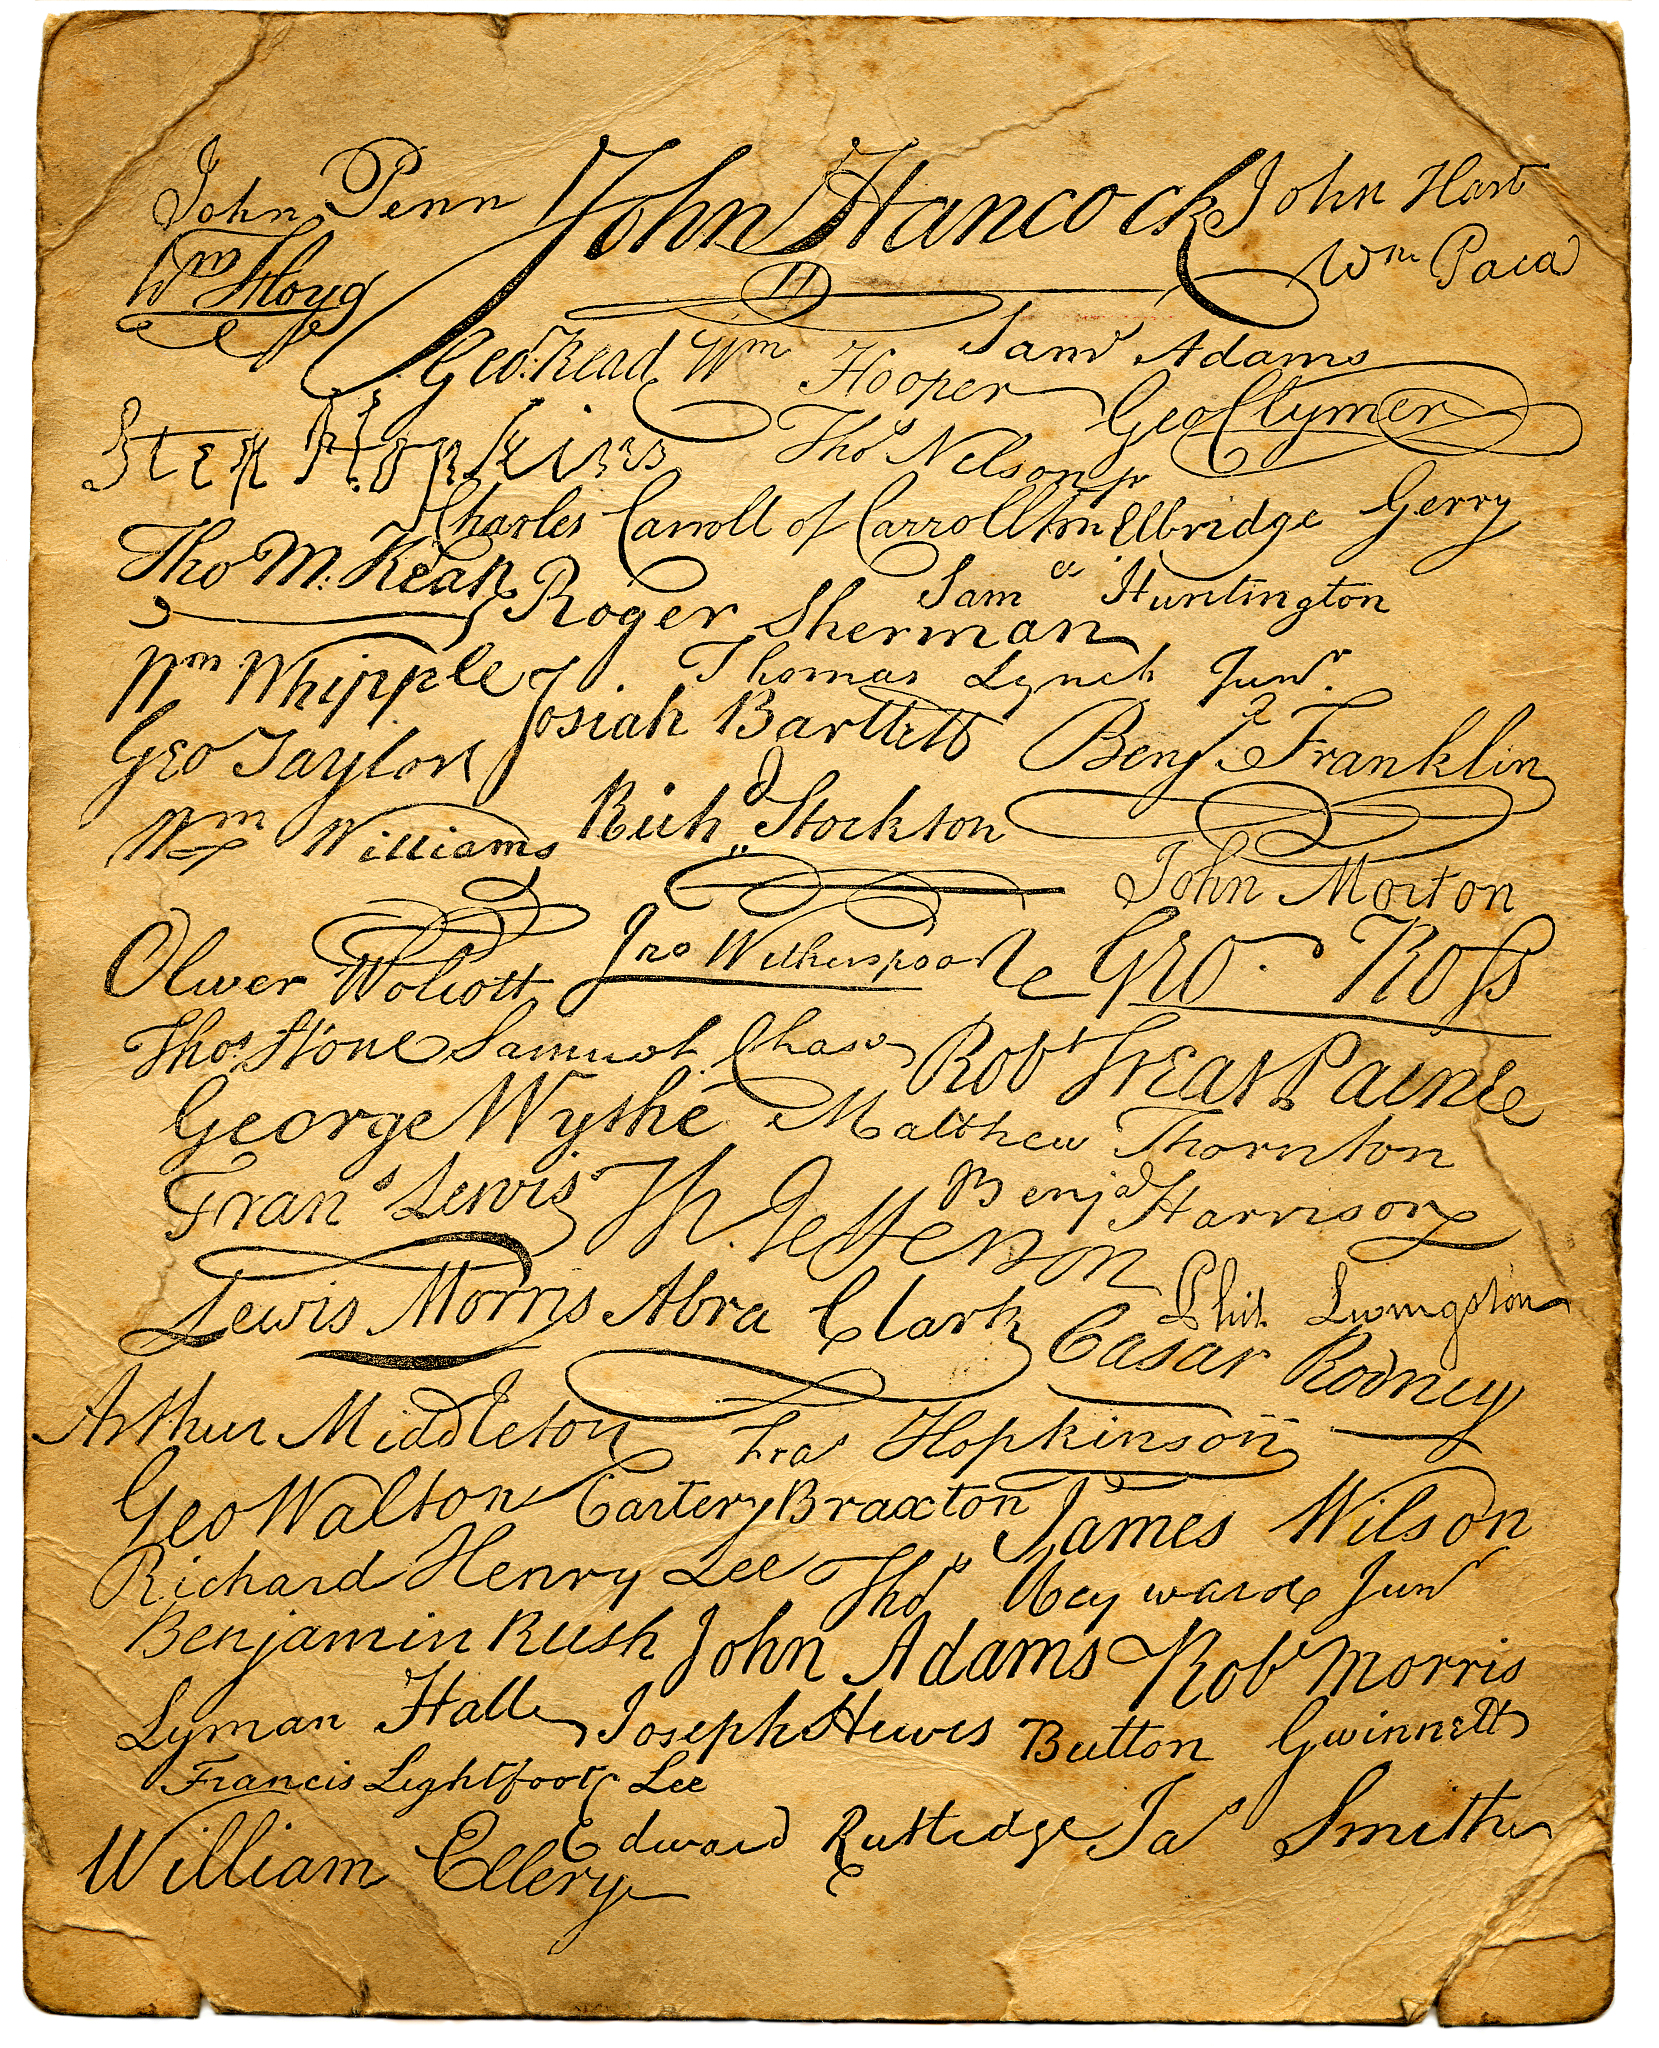 John Penn John Hancock John Hart
Wm Floyd Wm Paca
Geo. Read Wm Hooper Saml Adams
Step Hopkins Thos Nelson jr Geo Clymer
Charles Carroll of Carrollton Elbridge Gerry
Tho M. Kean Roger Sherman Samel Huntington
Wm Whipple Thomas Lynch Junr.
Josiah Bartlett Benja Franklin
Geo Taylor
Wm Williams Richd Stockton
John Morton
Oliver Wolcott Jno Witherspoon Geo. Ross
Thos. Stone Samuel Chase Robt Treat Paine
George Wythe Matthew Thornton
Frans. Lewis Th. Jefferson Benja Harrison
Lewis Morris Abra Clark Phil. Livingston
Casar Rodney
Arthur Middleton Fras Hopkinson
Geo Walton Carter Braxton James Wilson
Richard Henry Lee Thos Heyward Junr
Benjamin Rush John Adams Robt Morris
Lyman Hall Joseph Hewes Button Gwinnett
Francis Lightfoot Lee
William Ellery Edward Rutledge Jas Smith